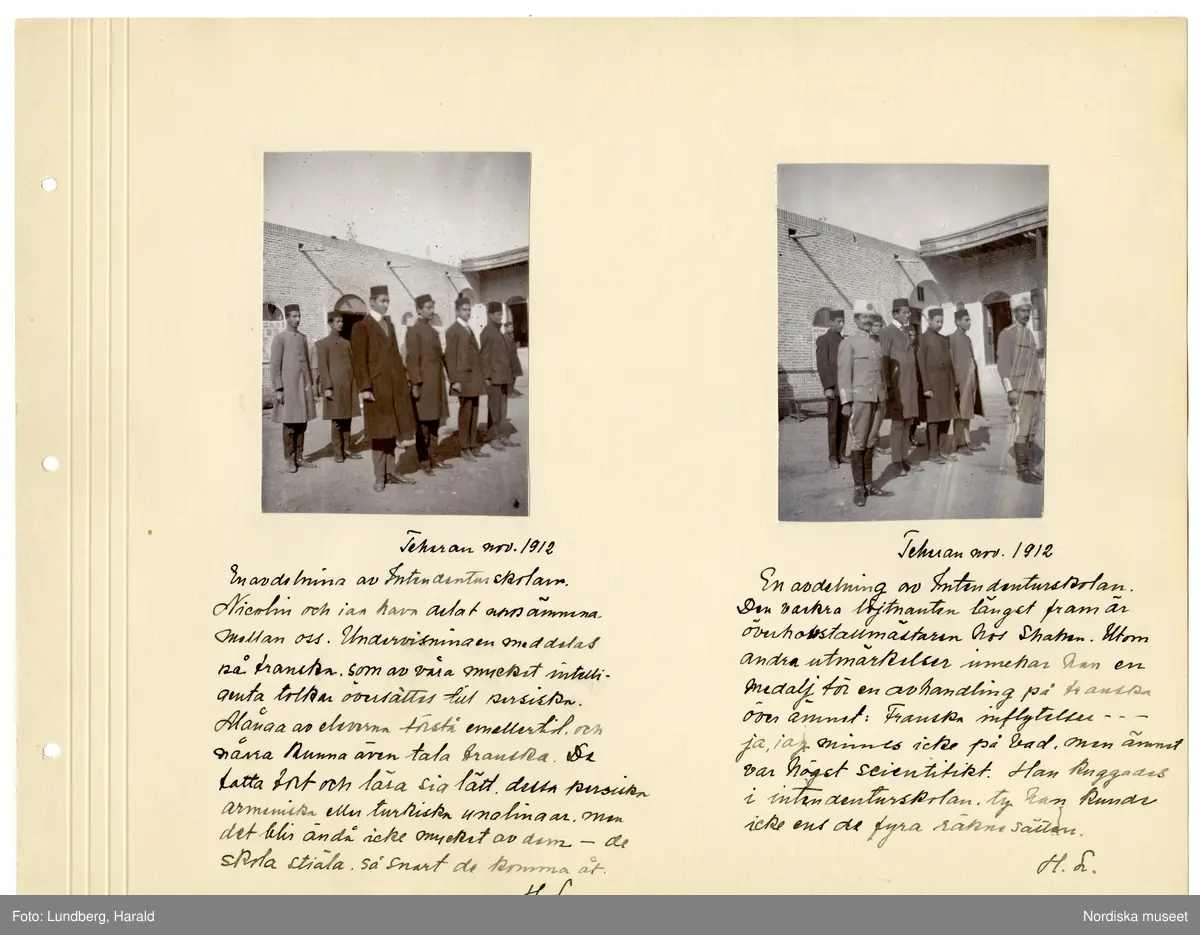 Teheran nov. 1912
En avdelning av Intendenturskolan.
Nicolin och jag hava delat upp ämnena
mellan oss. Undervisningen meddelas
på franska, som av våra mycket intelli-
genta tolkar översättes till persiska.
Många av eleverna förstå emellertid och
några kunna även tala franska. De
fatta fort och lära sig lätt, dessa persiska
armeniska eller turkiska ynglingar, men
det blir ändå icke mycket av dem – de
skola stjäla, så snart de komma åt.
H. L.
Teheran nov. 1912
En avdelning av Intendenturskolan.
Den vackra löjtnanten längst fram är
överhovstallmästaren hos Shahen. Utom
andra utmärkelser innehar han en
medalj för en avhandling på franska
över ämnet: Franska inflytelser - - -
ja, jag minnes icke på vad, men ämnet
var högst scientifikt. Han kuggades
i intendenturskolan, ty han kunde
icke ens de fyra räknesätten.
H. L.
Foto: Lundberg, Harald
Nordiska museet